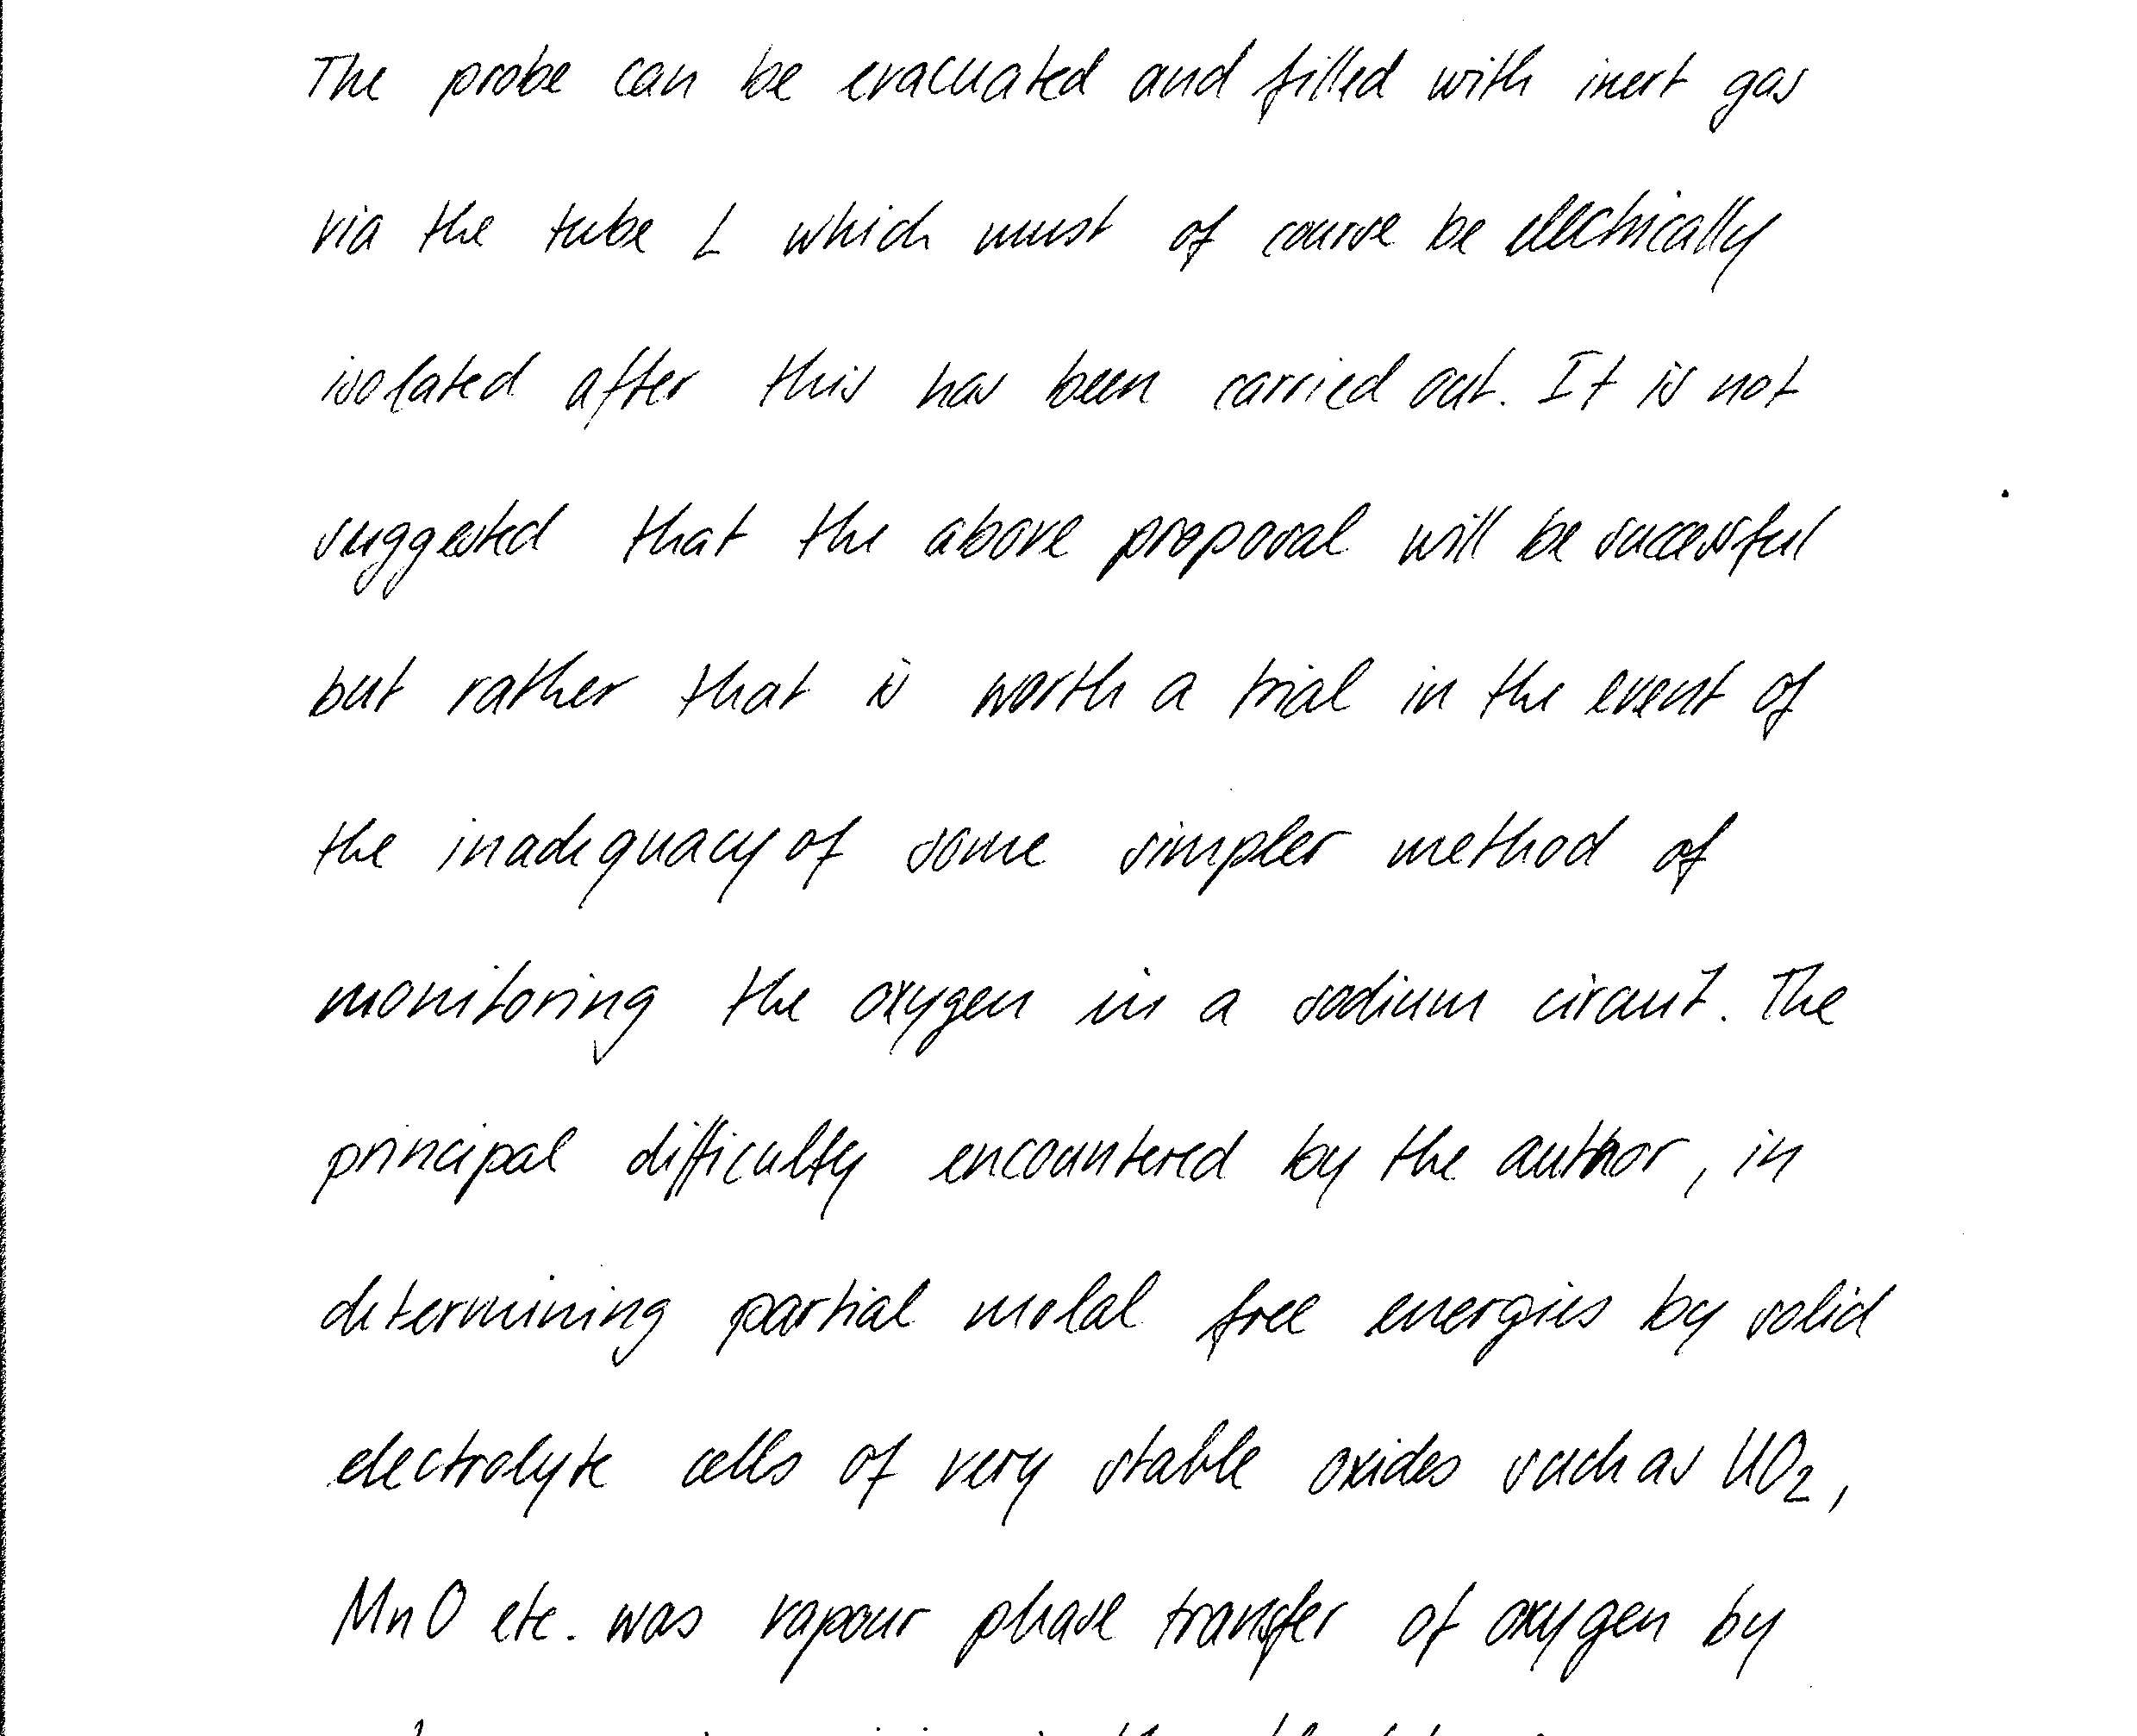 The probe can be evacuated and filled with inert gas
via the tube L which must of course be electrically
isolated after this has been carried out. It is not
suggested that the above proposal will be successful
but rather that is worth a trial in the event of
the inadequacy of some simpler method of
monitoring the oxygen in a sodium circuit. The
principal difficulty encountered by the author, in
determining partial molal free energies by solid
electrolyte cells of very stable oxides such as UO₂,
MnO etc. was vapour phase transfer of oxygen by